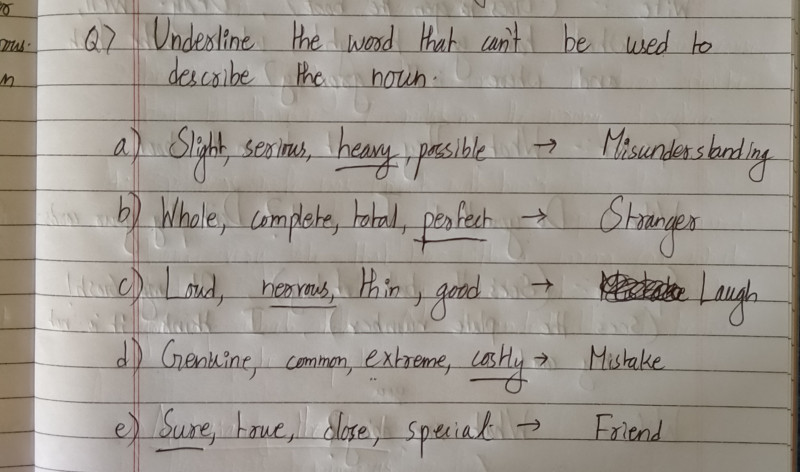 Q7 Underline the word that can't be used to
describe the noun.
a) Slight, serious, heavy, possible → Misunderstanding
b) Whole, complete, total, perfect → Stranger
c) Loud, nervous, thin, good → Laugh
d) Genuine, common, extreme, costly → Mistake
e) Sure, true, close, special → Friend